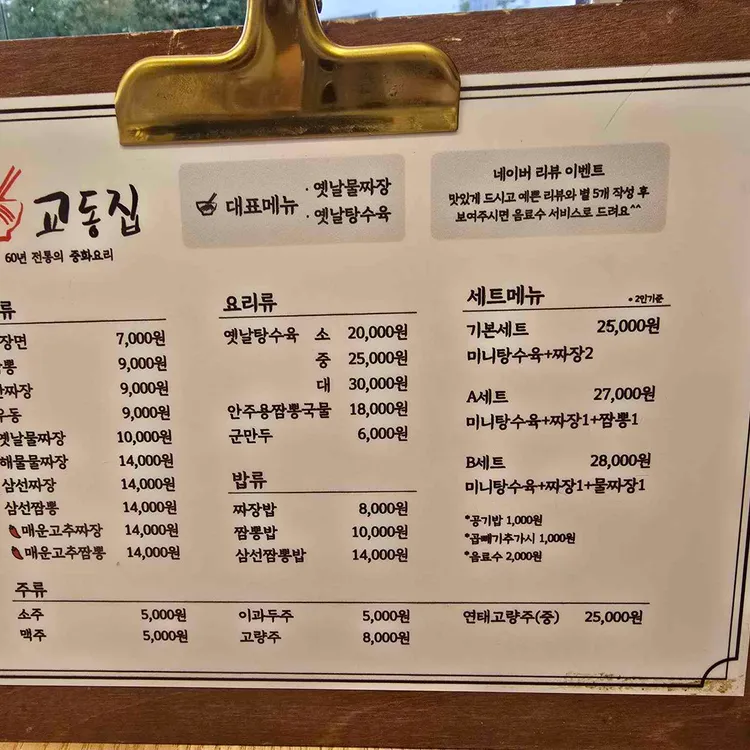 교동집
60년 전통의 중화요리
대표메뉴
· 옛날물짜장
· 옛날탕수육
네이버 리뷰 이벤트
맛있게 드시고 예쁜 리뷰와 별 5개 작성 후
보여주시면 음료수 서비스로 드려요^^
류
장면 7,000원
뽕 9,000원
짜장 9,000원
우동 9,000원
옛날물짜장 10,000원
해물물짜장 14,000원
삼선짜장 14,000원
삼선짬뽕 14,000원
매운고추짜장 14,000원
매운고추짬뽕 14,000원
요리류
옛날탕수육 소 20,000원
중 25,000원
대 30,000원
안주용짬뽕국물 18,000원
군만두 6,000원
밥류
짜장밥 8,000원
짬뽕밥 10,000원
삼선짬뽕밥 14,000원
세트메뉴 • 2인기준
기본세트 25,000원
미니탕수육+짜장2
A세트 27,000원
미니탕수육+짜장1+짬뽕1
B세트 28,000원
미니탕수육+짜장1+물짜장1
*공기밥 1,000원
*곱빼기추가시 1,000원
*음료수 2,000원
주류
소주 5,000원
맥주 5,000원
이과두주 5,000원
고량주 8,000원
연태고량주(중) 25,000원